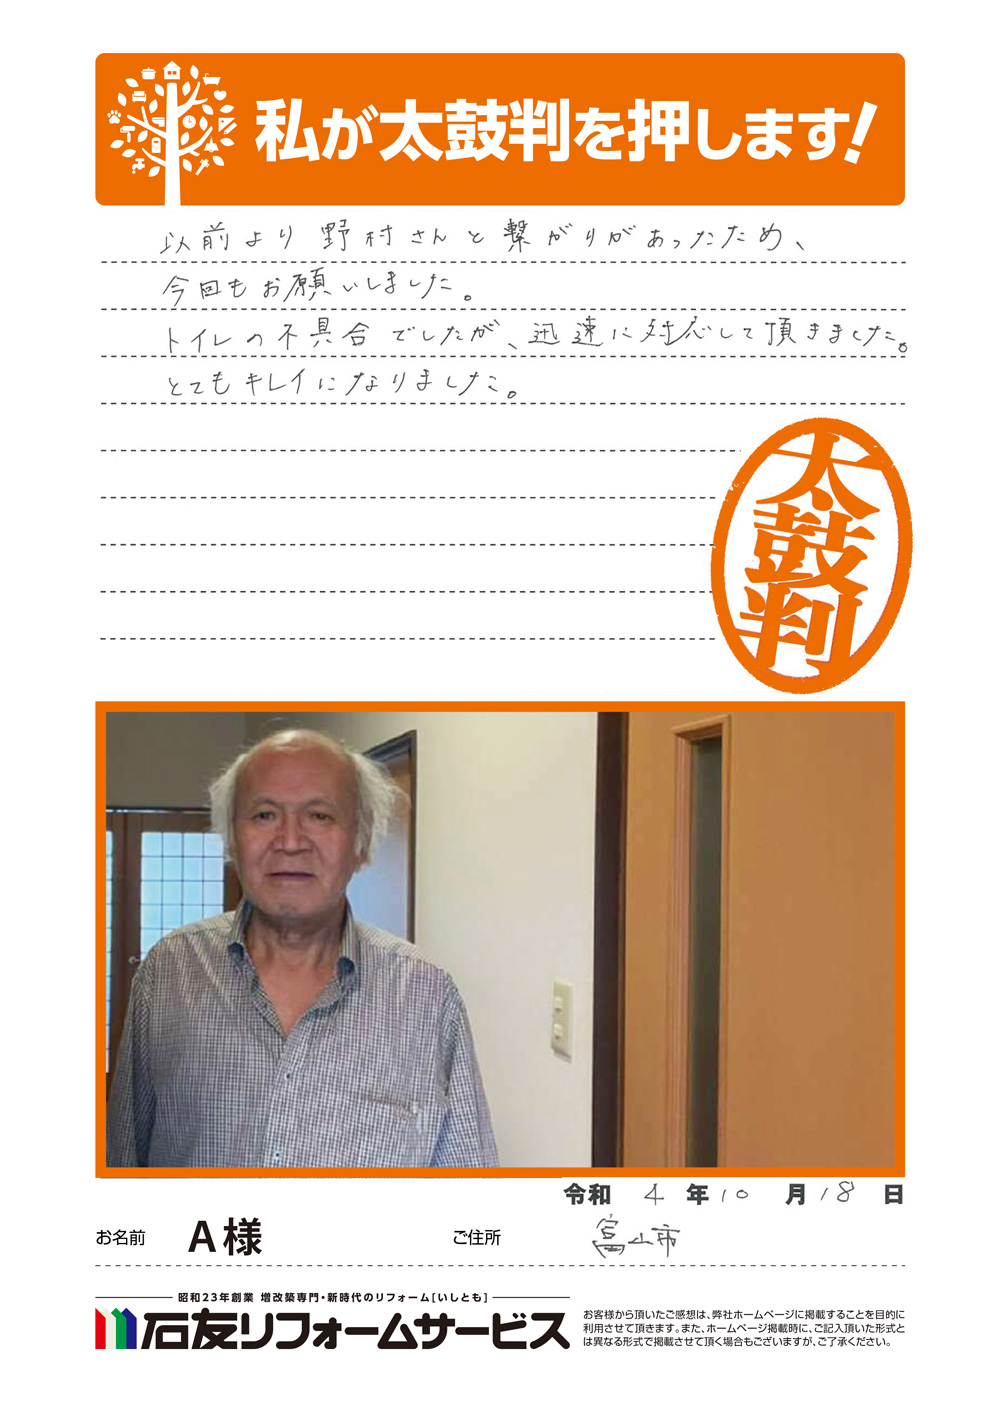 私が太鼓判を押します!
以前より野村さんと繋がりがあったため、
今回もお願いしました。
トイレの不具合でしたが、迅速に対応して頂きました。
とてもキレイになりました。
太鼓判
令和 4 年 10 月 18 日
お名前 A様 ご住所 富山市
昭和23年創業 増改築専門・新時代のリフォーム[いしとも]
石友リフォームサービス
お客様から頂いたご感想は、弊社ホームページに掲載することを目的に
利用させて頂きます。また、ホームページ掲載時に、ご記入頂いた形式と
は異なる形式で掲載させて頂く場合もございますが、ご了承ください。